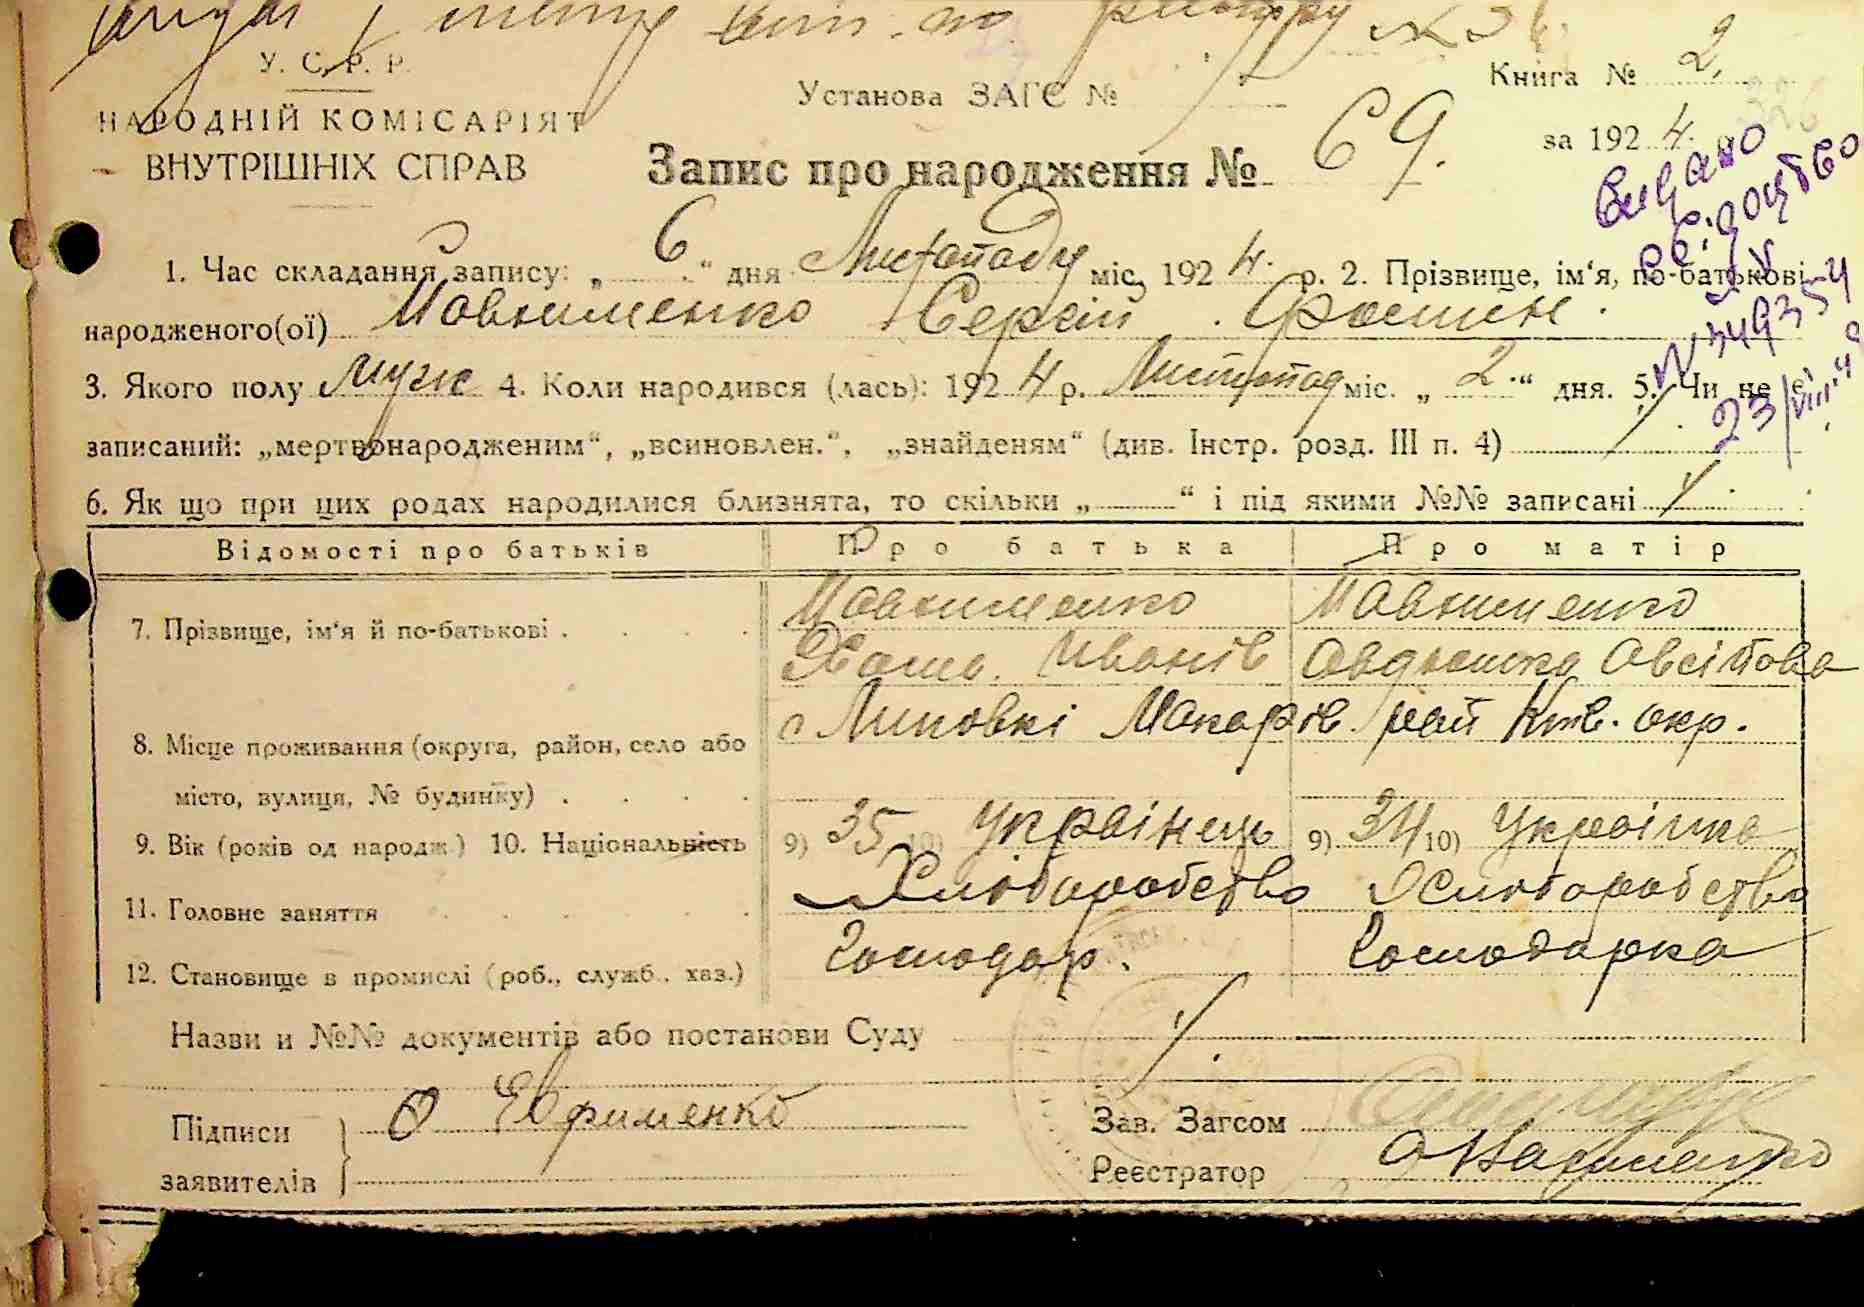 У. С. Р. Р.
НАРОДНІЙ КОМІСАРІЯТ
ВНУТРІШНІХ СПРАВ
Установа ЗАГС №
Книга № 2.
за 1924.
Запис про народження № 69.
Видано
свідоцтво
№ 349354
23/VIII
1. Час складання запису: „6“ дня Листопаду міс. 1924. р. 2. Прізвище, ім‘я, по-батькові
народженого(ої) Сергій
3. Якого полу муж 4. Коли народився (лась): 1924 р. Листопад міс. „2.“ дня. 5. Чи не є
записаний: „мертвонародженим“, „всиновлен.“, „знайденям“ (див. Інстр. розд. III п. 4)
6. Як що при цих родах народилися близнята, то скільки „ “ і під якими №№ записані
Відомості про батьків Про батька Про матір
7. Прізвище, ім‘я й по-батькові
Хома Іванів
8. Місце проживання (округа, район, село або
с Липовкі Макарів рай Київ. окр.
місто, вулиця, № будинку)
9. Вік (років од народж.) 10. Національність 9) 35 10) Українець 9) 34 10) Українка
11. Головне заняття Хліборобство Хліборобство
12. Становище в промислі (роб., служб., хаз.) Господар. Господарка
Назви и №№ документів або постанови Суду
Підписи
заявителів
О Евфименко
Зав. Загсом
Реєстратор